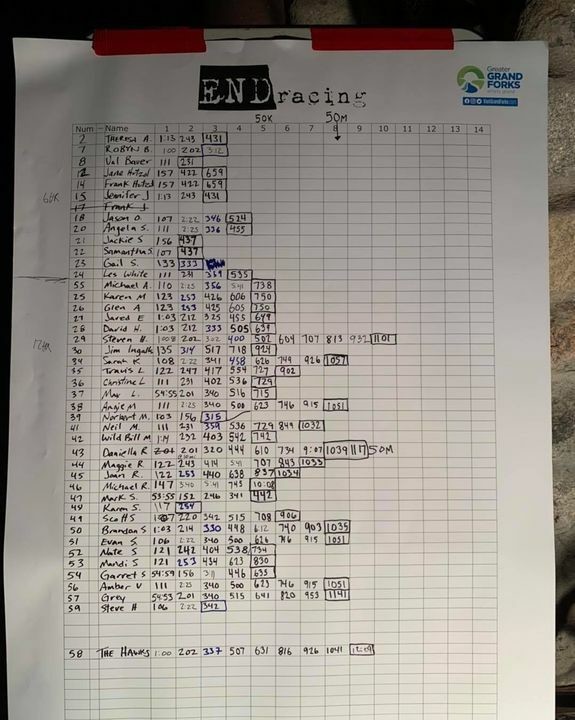 Greater
GRAND
FORKS
END racing
50K 50M
Num Name 1 2 3 4 5 6 7 8 9 10 11 12 13 14
2 THERESA A. 1:13 243 431
7 ROBYN B. 1:00 202 312
8 Val Baver 111 231
12 Jane Hotzel 157 422 659
14 Frank Hotzel 157 422 659
15 Jennifer J 1:13 243 431
17 Frank J
18 Jason O. 107 2:22 346 524
20 Angela S. 111 2:25 336 455
21 Jackie S 156 437
22 Samantha S. 107 437
23 Gail S. 133 333
24 Les White 111 231 359 535
55 Michael A. 110 2:25 356 541 738
25 Karen M 123 253 426 606 750
26 Glen A 123 253 425 605 750
27 Jared E 1:03 212 325 455 649
28 David H. 1:03 212 333 505 639
29 Steven H 1:008 202 302 400 502 604 707 813 932 1101
30 Jim 135 314 517 718 924
34 Sarah K 108 2:22 341 458 626 749 926 1057
35 Travis L 122 247 417 554 727 902
36 Christine L 111 231 402 536 729
37 Max L. 54:55 201 340 516 715
38 Angie M 111 2:25 340 500 623 746 915 1051
39 Norbert M. 103 156 315
41 Neil M. 111 231 359 536 729 849 1032
42 Wild Bill M 1:14 232 403 542 742
43 Daniella R 201 320 444 610 734 9:07 1039 1117 50M
44 Maggie R. 122 243 414 541 707 843 1033
45 Joan R. 122 253 440 638 837 1034
46 Michael R. 147 340 5:41 745 10:08
47 Mark S. 53:55 152 246 341 442
48 Karen S. 117 254
49 Scott S 107 220 342 515 708 906
50 Brandon S 1:03 214 330 448 612 740 903 1035
51 Evan S 106 2:22 340 500 626 746 915 1051
52 Nate S 121 242 404 538 734
53 Mandi S 121 253 434 623 830
54 Garret S 54:59 156 311 446 635
56 Amber V 111 2:25 340 500 623 746 915 1051
57 Grey 54:53 201 340 515 641 820 953 1141
59 Steve H 106 2:22 342
58 THE HAWKS 1:00 202 337 507 631 816 926 1041 12:09